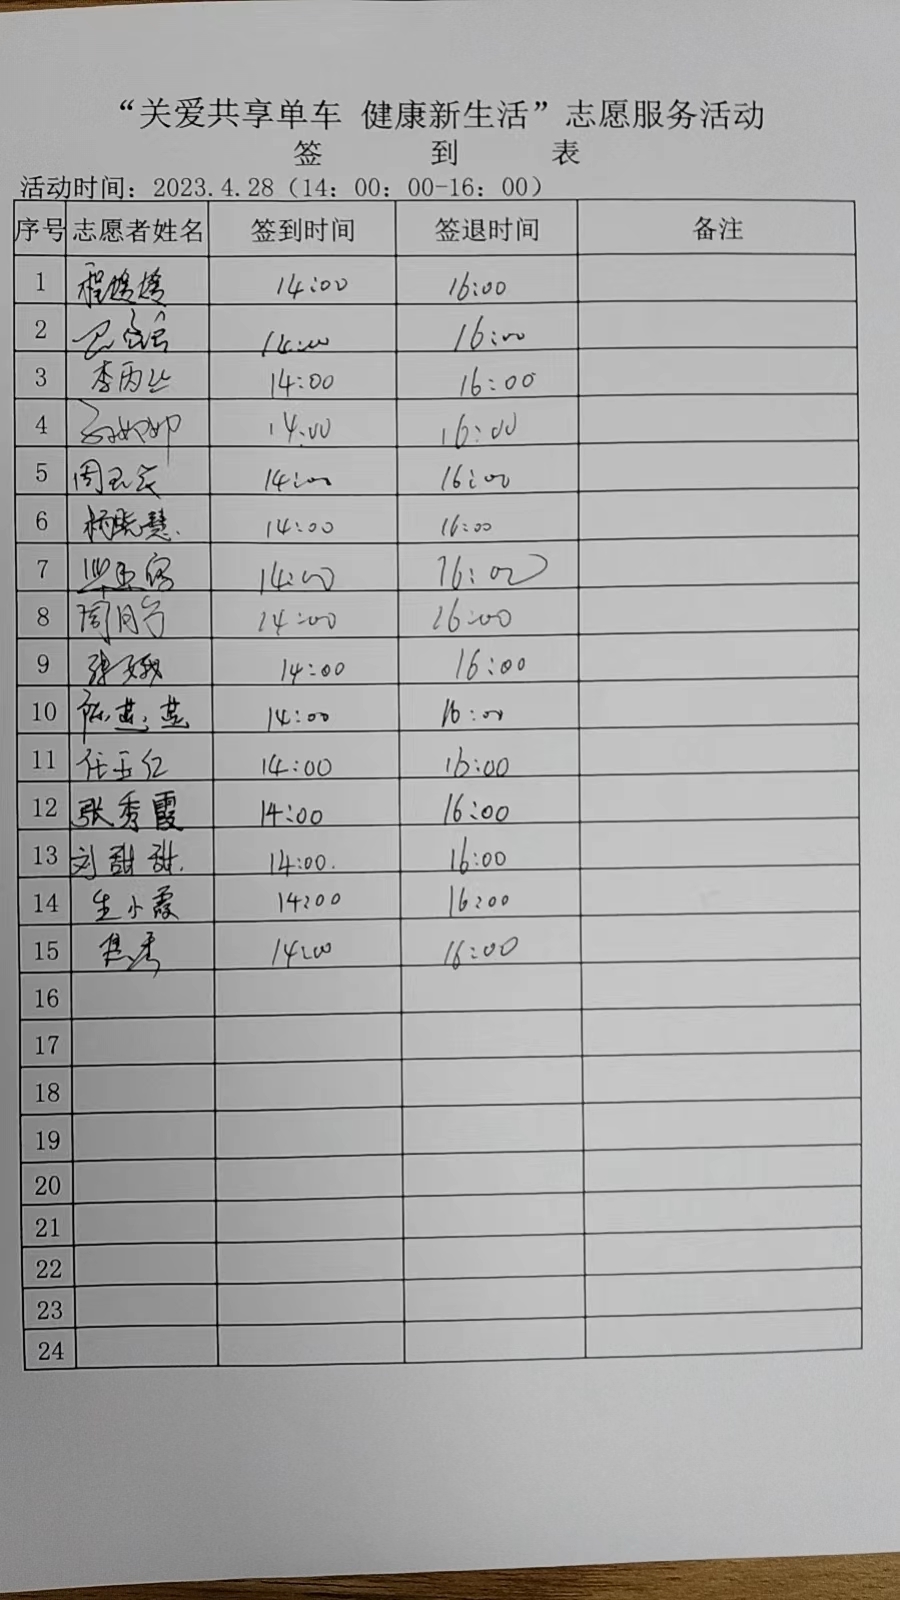 “关爱共享单车 健康新生活”志愿服务活动
签 到 表
活动时间：2023.4.28（14：00：00-16：00）
序号 志愿者姓名 签到时间 签退时间 备注
1 14:00 16:00
2 14:00 16:00
3 李丙 14:00 16:00
4 14:00 16:00
5 周 14:00 16:00
6 杨晓慧. 14:00 16:00
7 14:00 16:00
8 周月 14:00 16:00
9 张 14:00 16:00
10 陈燕燕 14:00 16:00
11 任玉红 14:00 16:00
12 张秀霞 14:00 16:00
13 刘甜甜. 14:00. 16:00
14 生小霞 14:00 16:00
15 14:00 16:00
16
17
18
19
20
21
22
23
24